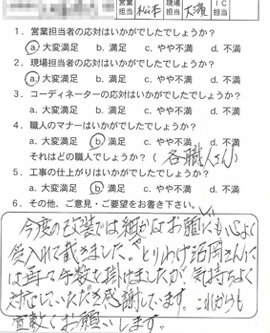 営業担当 松本 現場担当 大濱 IC担当
1. 営業担当者の応対はいかがでしたでしょうか?
a. 大変満足 b. 満足 c. やや不満 d. 不満
2. 現場担当者の応対はいかがでしたでしょうか?
a. 大変満足 b. 満足 c. やや不満 d. 不満
3. コーディネーターの応対はいかがでしたでしょうか?
a. 大変満足 b. 満足 c. やや不満 d. 不満
4. 職人のマナーはいかがでしたでしょうか?
a. 大変満足 b. 満足 c. やや不満 d. 不満
それはどの職人でしょうか? (各職人さん)
5. 工事の仕上がりはいかがでしたでしょうか?
a. 大変満足 b. 満足 c. やや不満 d. 不満
6. その他、ご意見・ご要望をお書き下さい。
今度の改装では細かなお願いにも心よく
受入れて戴きました。とりわけ
には再々手数を掛けましたが気持ちよく
対応していただき感謝しています。これからも
宜敷くお願いします。